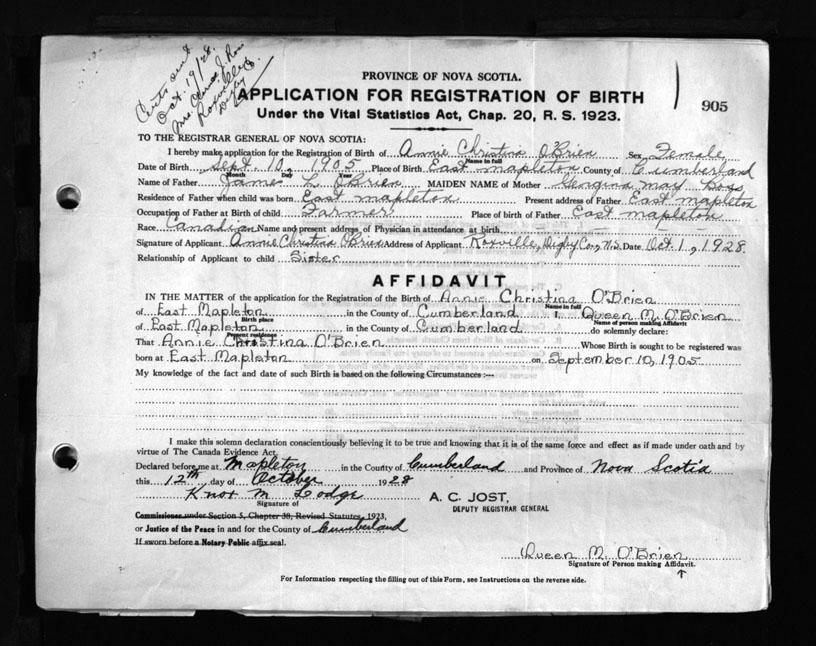 Certs sent
Oct. 19/28.
Mrs. J. Ross
Roxville
Digby Co.
PROVINCE OF NOVA SCOTIA.
APPLICATION FOR REGISTRATION OF BIRTH
905
Under the Vital Statistics Act, Chap. 20, R. S. 1923.
TO THE REGISTRAR GENERAL OF NOVA SCOTIA:
I hereby make application for the Registration of Birth of Annie Christina O'Brien Sex Female
Name in full
Date of Birth Sept. 10, 1905 Place of Birth East Mapleton County of Cumberland
Month Day Year
Name of Father James L. O'Brien MAIDEN NAME of Mother May
Residence of Father when child was born East Mapleton Present address of Father East Mapleton
Occupation of Father at Birth of child Farmer Place of birth of Father East Mapleton
Race Canadian Name and present address of Physician in attendance at birth
Signature of Applicant Annie Christina O'Brien Address of Applicant Roxville, Digby Co., N.S. Date Oct. 1, 1928.
Relationship of Applicant to child Sister
AFFIDAVIT
IN THE MATTER of the application for the Registration of the Birth of Annie Christina O'Brien
Name in full
of East Mapleton in the County of Cumberland I, Queen M. O'Brien
Birth place Name of person making Affidavit
of East Mapleton in the County of Cumberland do solemnly declare:
Present residence
That Annie Christina O'Brien Whose Birth is sought to be registered was
born at East Mapleton on September 10, 1905
My knowledge of the fact and date of such Birth is based on the following Circumstances :—
I make this solemn declaration conscientiously believing it to be true and knowing that it is of the same force and effect as if made under oath and by
virtue of The Canada Evidence Act.
Declared before me at Mapleton in the County of Cumberland and Province of Nova Scotia
this 12th day of October 1928
Knox M. Lodge
Signature of
A. C. JOST,
DEPUTY REGISTRAR GENERAL
Commissioner under Section 5, Chapter 38, Revised Statutes, 1923,
or Justice of the Peace in and for the County of Cumberland
If sworn before a Notary Public affix seal.
Queen M. O'Brien
Signature of Person making Affidavit.
For Information respecting the filling out of this Form, see Instructions on the reverse side.